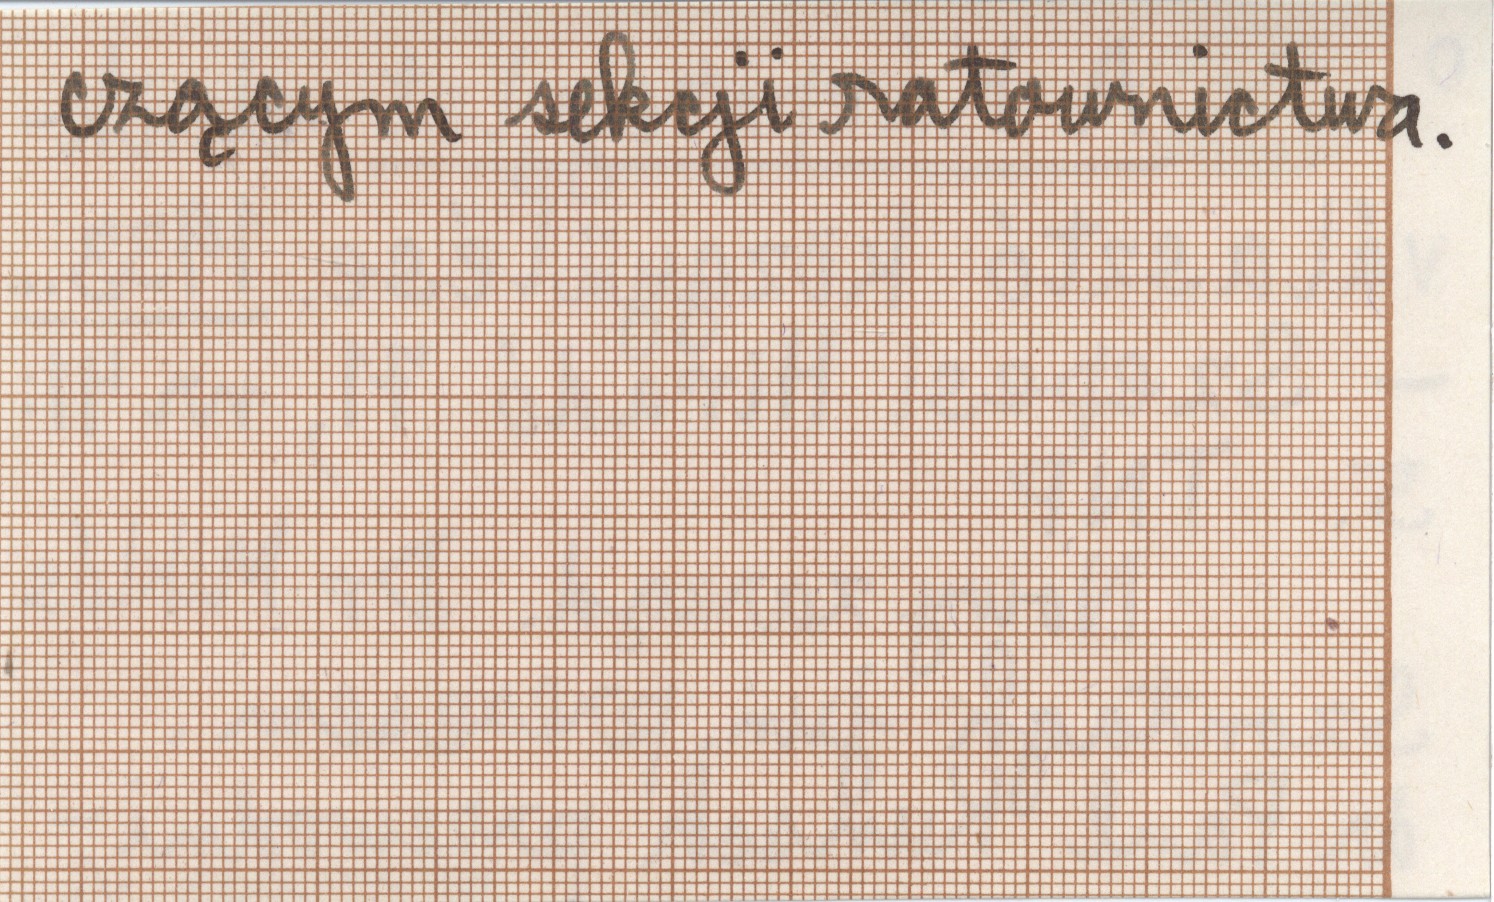 czącym sekcji ratownictwa.